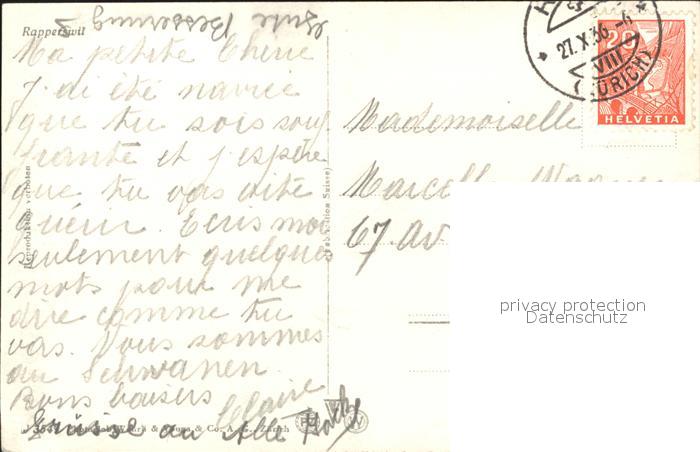 Rapperswil
Gute Besserung
Ma petite Cherie
J'ai été navrée
que tu sois souf
frante et j'espère
que tu vas vite
guérir. Ecris moi
seulement quelques
mots pour me
dire comme tu
vas. Nous sommes
au Schwanen.
Bons baisers
Claire
Grüsse an Alle
Reproduktion verboten
27.X.36.-6
VIII
(ZÜRICH)
20
HELVETIA
Mademoiselle
67 av
privacy protection
Datenschutz
& Co. A. G., Zürich